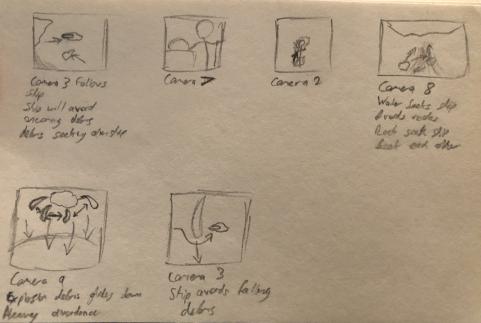 Camera 3 Follows
Ship
Ship will avoid
oncoming debris
debris seeking other ship
Camera 7
Camera 2
Camera 8
Water seeks ship
Avoids rocks
Rock seek ship
each other
Camera 9
Explosion debris glides down
avoidance
Camera 3
Ship avoids falling
debris